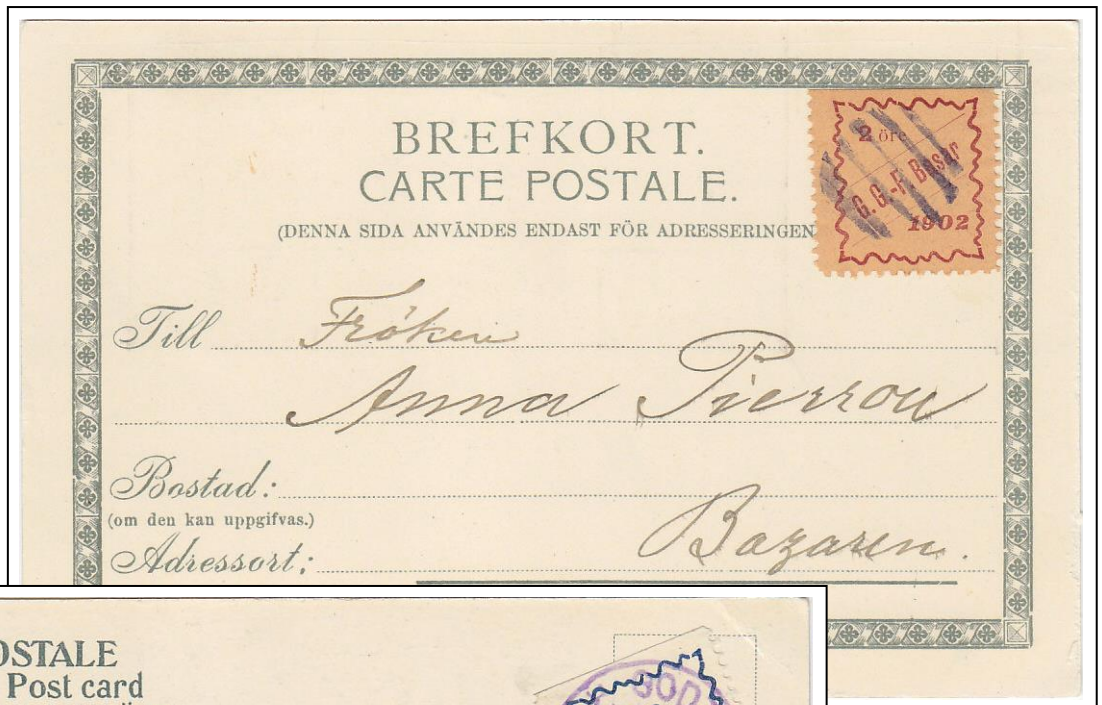 BREFKORT.
CARTE POSTALE.
(DENNA SIDA ANVÄNDES ENDAST FÖR ADRESSERINGEN
2 öre
G. G.-F. Basar
1902
Till Fröken
Anna Pierrou
Bostad:
(om den kan uppgifvas.)
Bazaren.
Adressort:
OSTALE
Post card
GOD